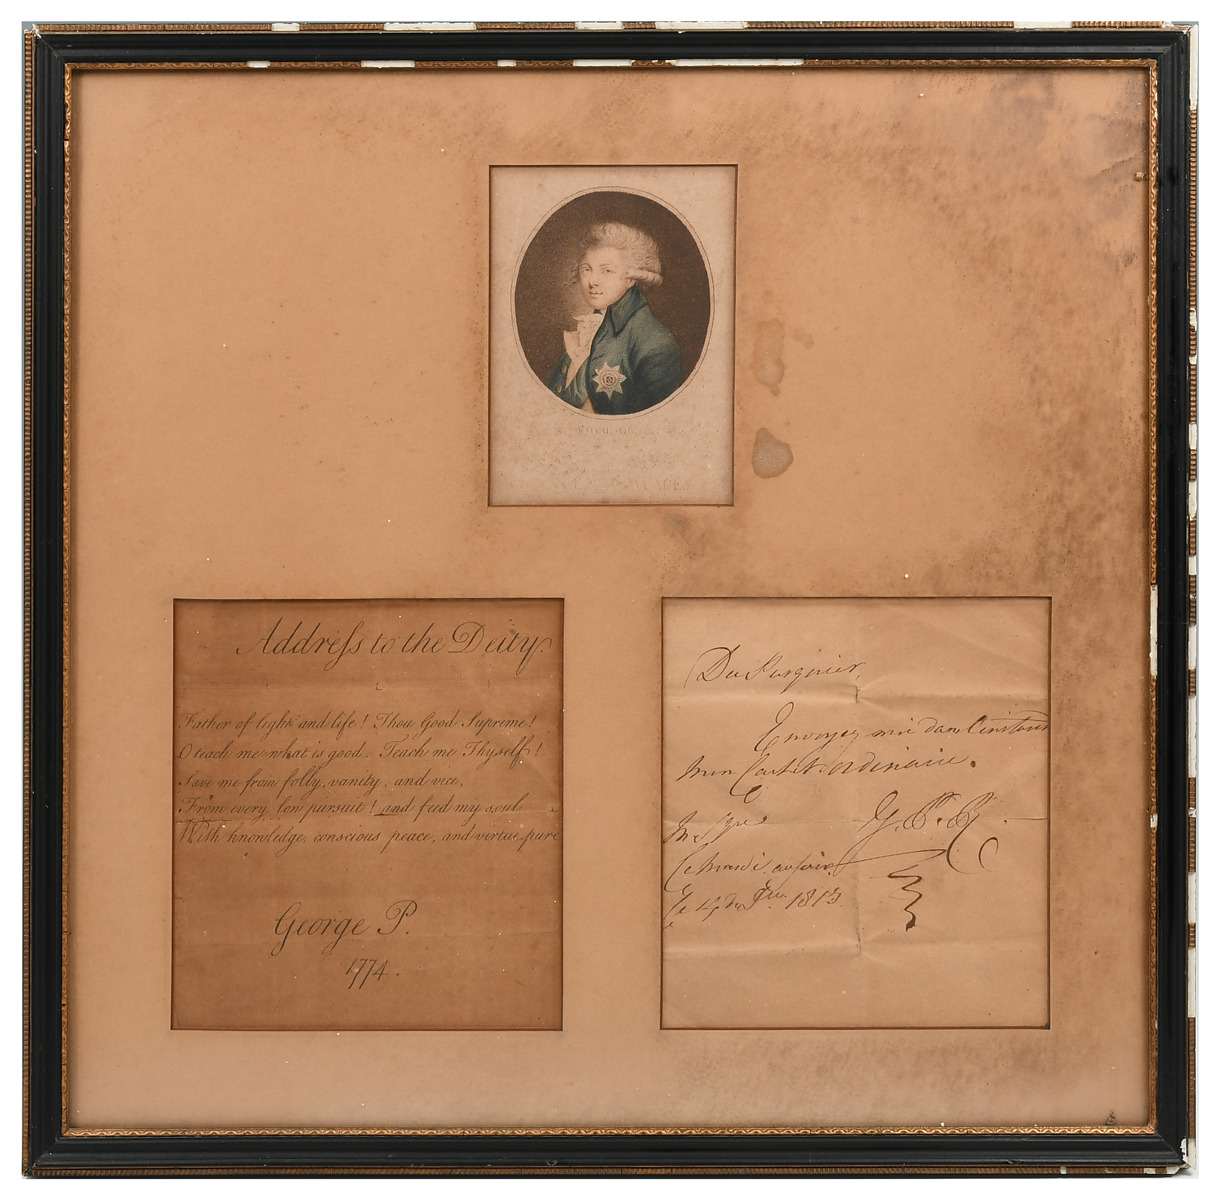 ROYAL
Addreſs to the Deity.
Father of light and life! Thou Good Supreme!
O teach me what is good. Teach me Thyself!
Save me from folly, vanity, and vice,
From every low pursuit! and feed my soul
With knowledge, conscious peace, and virtue pure
George P.
1774.
Du Pasquier,
Envoyez moi dans l'instant
mon Cachet ordinaire.
G. P. R.
Ce mardi au soir
Ce 4 de 1813.